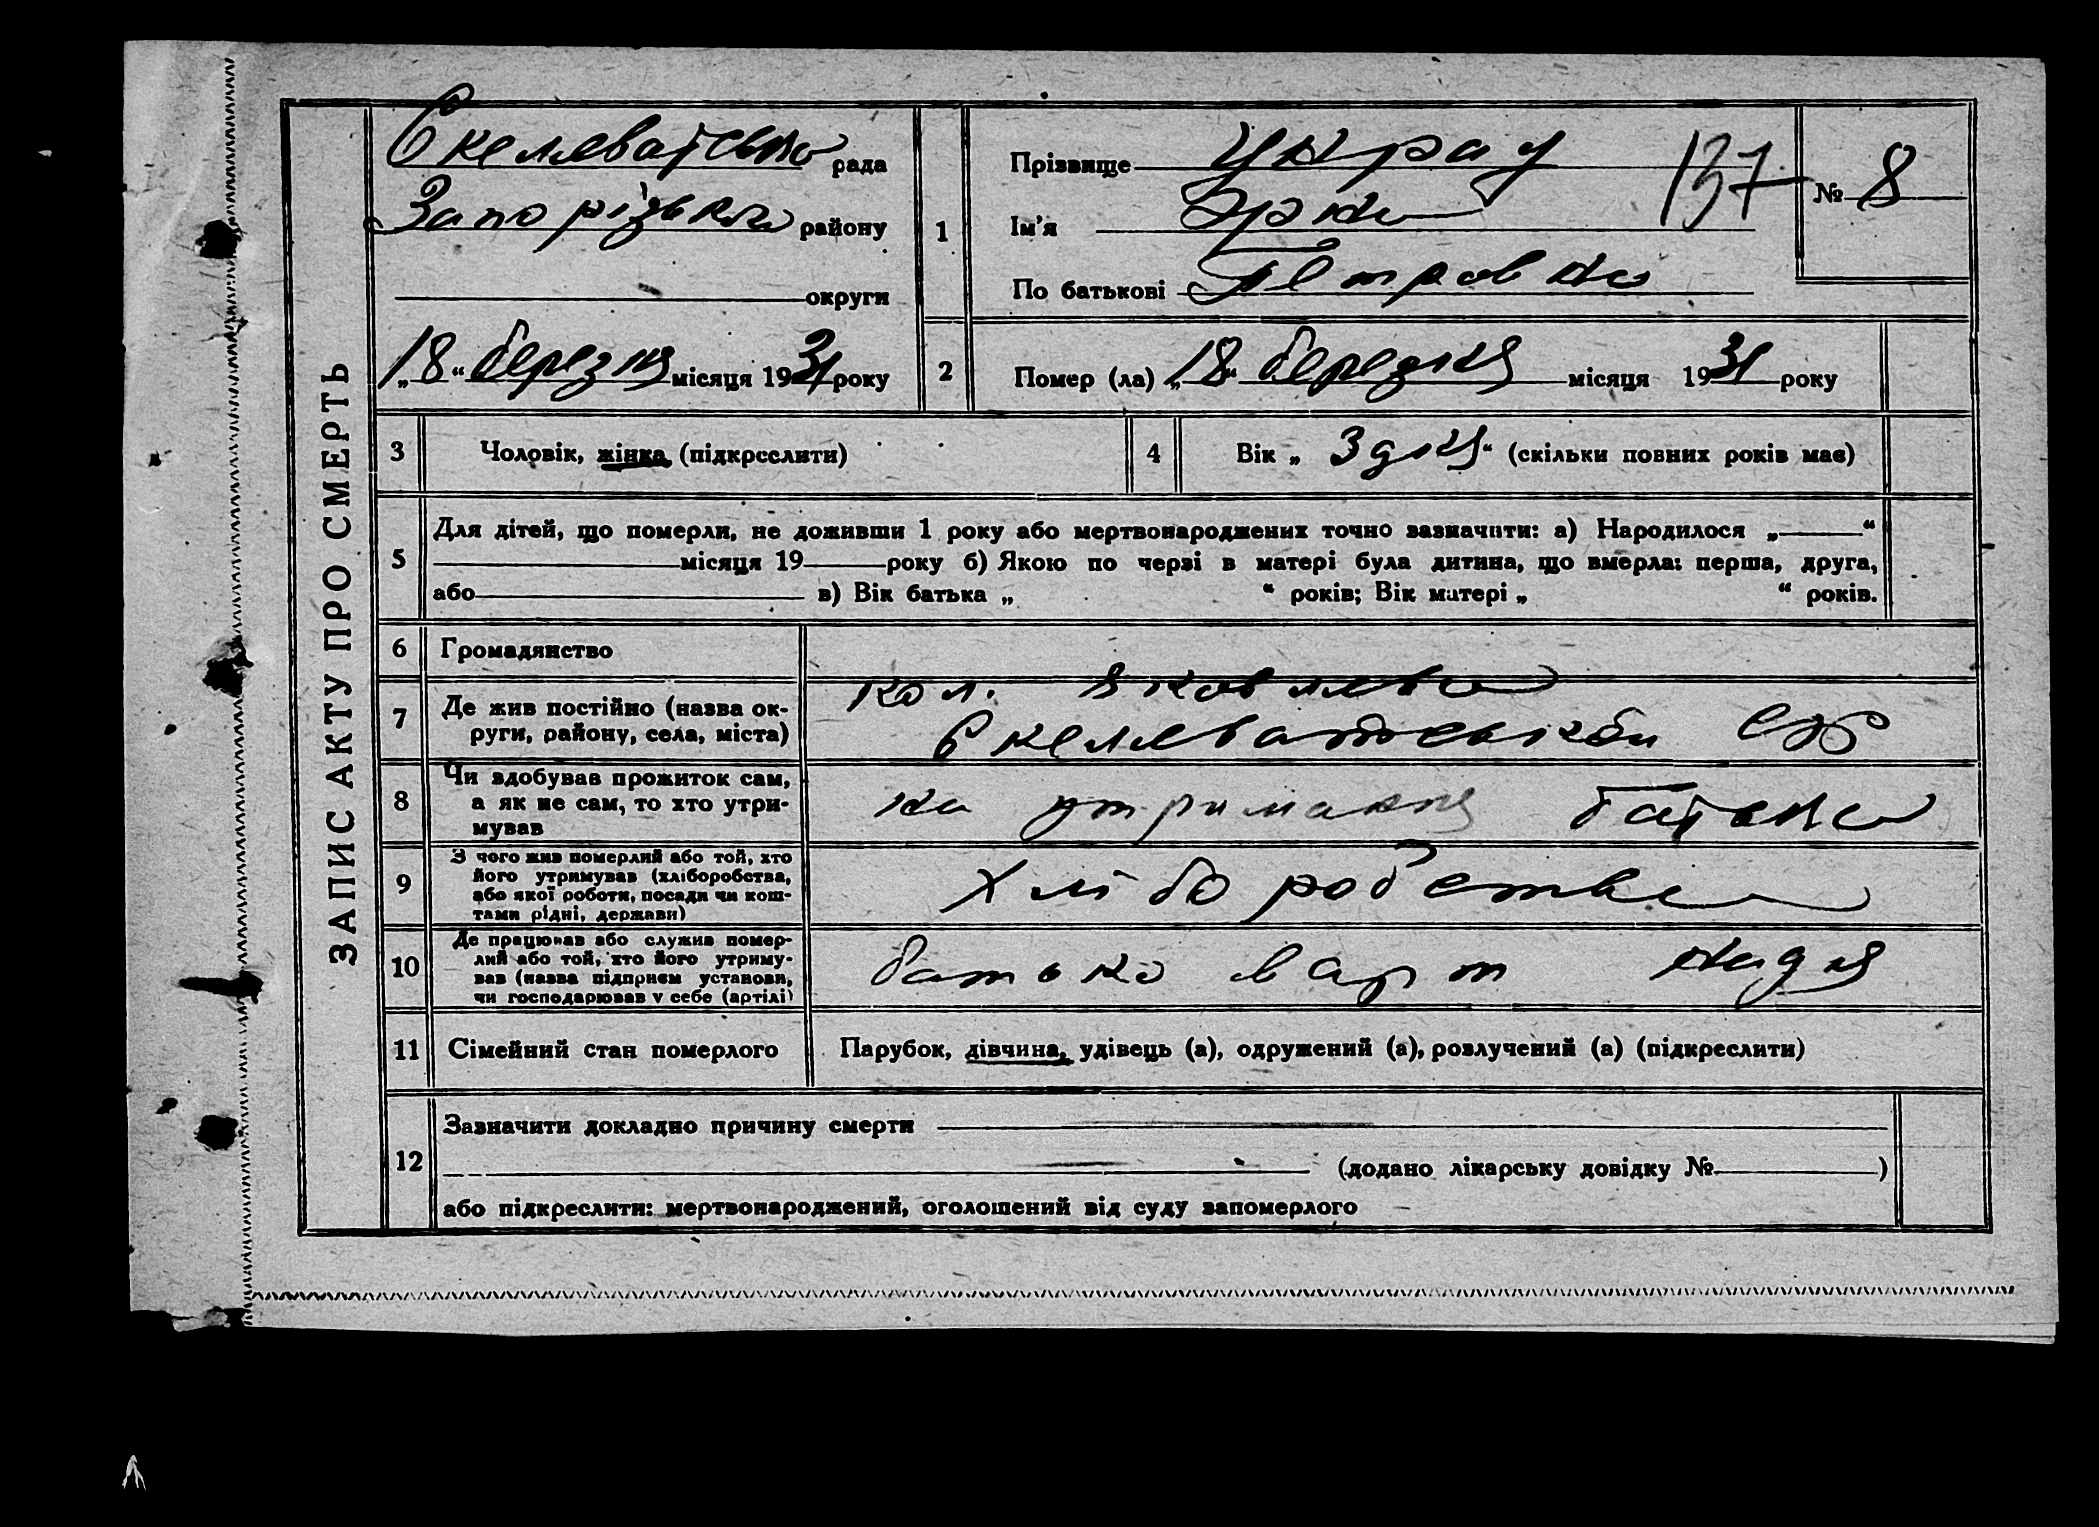 ЗАПИС АКТУ ПРО СМЕРТЬ
Скелеватська рада
Запорізького району
округи
„18“ березня місяця 1931 року
1
Прізвище
Ім'я Эрна
По батькові Петровна
137
№ 8
2
Помер (ла) „18“ березня місяця 1931 року
3
Чоловік, жінка (підкреслити)
4
Вік „3 дня“ (скільки повних років має)
5
Для дітей, що померли, не доживши 1 року або мертвонароджених точно зазначити: а) Народилося „ “
місяця 19 року б) Якою по черзі в матері була дитина, що вмерла: перша, друга,
або в) Вік батька „ “ років; Вік матері „ “ років.
6
Громадянство
7
Де жив постійно (назва ок-
руги, району, села, міста)
кол. Яковлево
Скелеватської с/р
8
Чи здобував прожиток сам,
а як не сам, то хто утри-
мував
на утриманню батька
9
З чого жив померлий або той, хто
його утримував (хліборобства,
або якої роботи, посади чи кош-
тами рідні, держави)
Хліборобства
10
Де працював або служив помер-
лий або той, хто його утриму-
вав (назва підприєм установи,
чи господарював у себе (артілі)
батько
11
Сімейний стан померлого
Парубок, дівчина, удівець (а), одружений (а), розлучений (а) (підкреслити)
12
Зазначити докладно причину смерти
(додано лікарську довідку № )
або підкреслити: мертвонароджений, оголошений від суду запомерлого